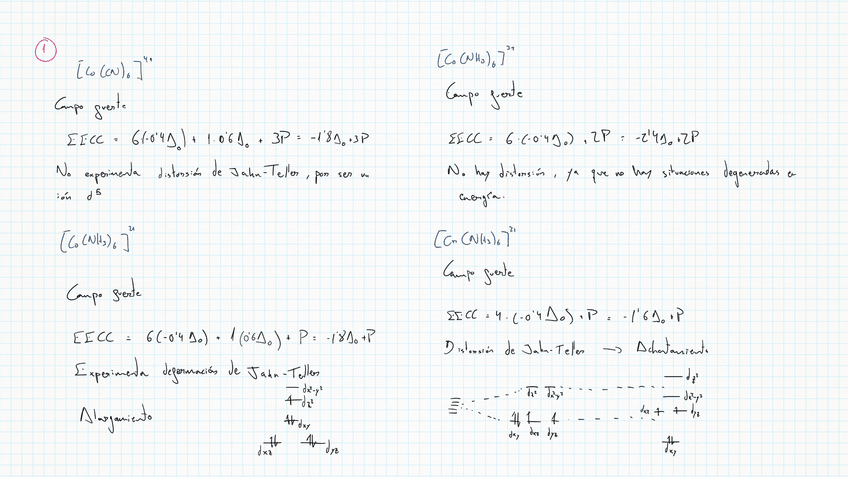 1
[Co(CN)6]4-
Campo fuerte
EECC = 6(-0'4Δo) + 1·0'6Δo + 3P = -1'8Δo+3P
No experimenta distorsión de Jahn-Teller, por ser un
ión d5
[Co(NH3)6]2+
Campo fuerte
EECC = 6(-0'4Δo) + 1(0'6Δo) + P = -1'8Δo+P
Experimenta deformación de Jahn-Teller
Alargamiento
dx²-y²
dz²
dxy
dxz dyz
[Co(NH3)6]3+
Campo fuerte
EECC = 6·(-0'4Δo) + 2P = -2'4Δo+2P
No hay distorsión, ya que no hay situaciones degeneradas en
energía.
[Cr(NH3)6]2+
Campo fuerte
EECC = 4·(-0'4Δo) + P = -1'6Δo+P
Distorsión de Jahn-Teller → Achatamiento
dz²
dz² dx²-y²
dx²-y²
dxz dyz
dxy dxz dyz
dxy